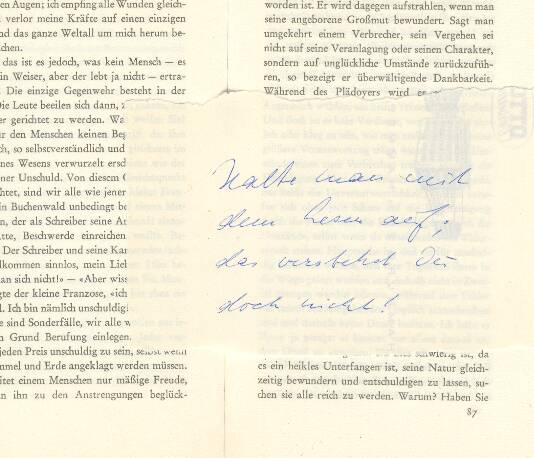 en Augen; ich empfing alle Wunden gleich-
verlor meine Kräfte auf einen einzigen
nd das ganze Weltall um mich herum be-
chen.
das ist es jedoch, was kein Mensch — es
in Weiser, aber der lebt ja nicht — ertra-
Die einzige Gegenwehr besteht in der
Die Leute beeilen sich dann,
er gerichtet zu werden. Wa
ür den Menschen keinen Beg
ch, so selbstverständlich und
nes Wesens verwurzelt ersch
ner Unschuld. Von diesem G
chtet, sind wir alle wie jener
in Buchenwald unbedingt be
n, der als Schreiber seine An
atte, Beschwerde einreichen
Der Schreiber und seine Kam
lkommen sinnlos, mein Lieb
an sich nicht!» — «Aber wiss
gte der kleine Franzose, «ich
l. Ich bin nämlich unschuldig
e sind Sonderfälle, wir alle w
n Grund Berufung einlegen.
jeden Preis unschuldig zu sein, selbst wenn
mmel und Erde angeklagt werden müssen.
itet einem Menschen nur mäßige Freude,
an ihn zu den Anstrengungen beglück-
worden ist. Er wird dagegen aufstrahlen, wenn man
seine angeborene Großmut bewundert. Sagt man
umgekehrt einem Verbrecher, sein Vergehen sei
nicht auf seine Veranlagung oder seinen Charakter,
sondern auf unglückliche Umstände zurückzufüh-
ren, so bezeigt er überwältigende Dankbarkeit.
Während des Plädoyers wird er
Halte man mit
dem Lesen auf;
das verstehst Du
doch nicht!
schwierig ist, da
es ein heikles Unterfangen ist, seine Natur gleich-
zeitig bewundern und entschuldigen zu lassen, su-
chen sie alle reich zu werden. Warum? Haben Sie
87